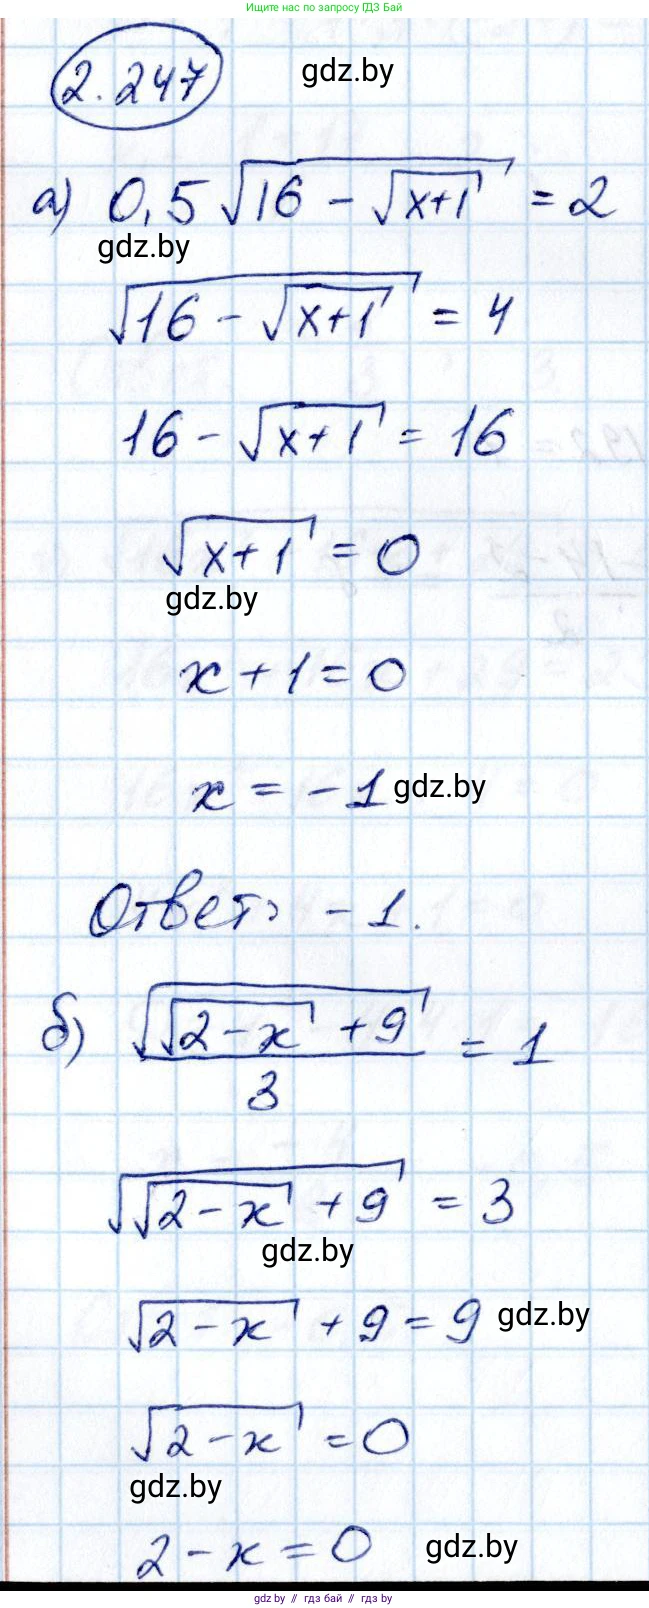 Ищите нас в интернете по запросу ГДЗ Бай
2.247
gdz.by
а) 0,5√(16 - √(x+1)) = 2
gdz.by
√(16 - √(x+1)) = 4
16 - √(x+1) = 16
√(x+1) = 0
gdz.by
x + 1 = 0
x = -1 gdz.by
Ответ: -1.
б) √(√(2-x) + 9) / 3 = 1
√(√(2-x) + 9) = 3
gdz.by
√(2-x) + 9 = 9 gdz.by
√(2-x) = 0
gdz.by
2 - x = 0 gdz.by
gdz.by // гдз бай // гдз.by